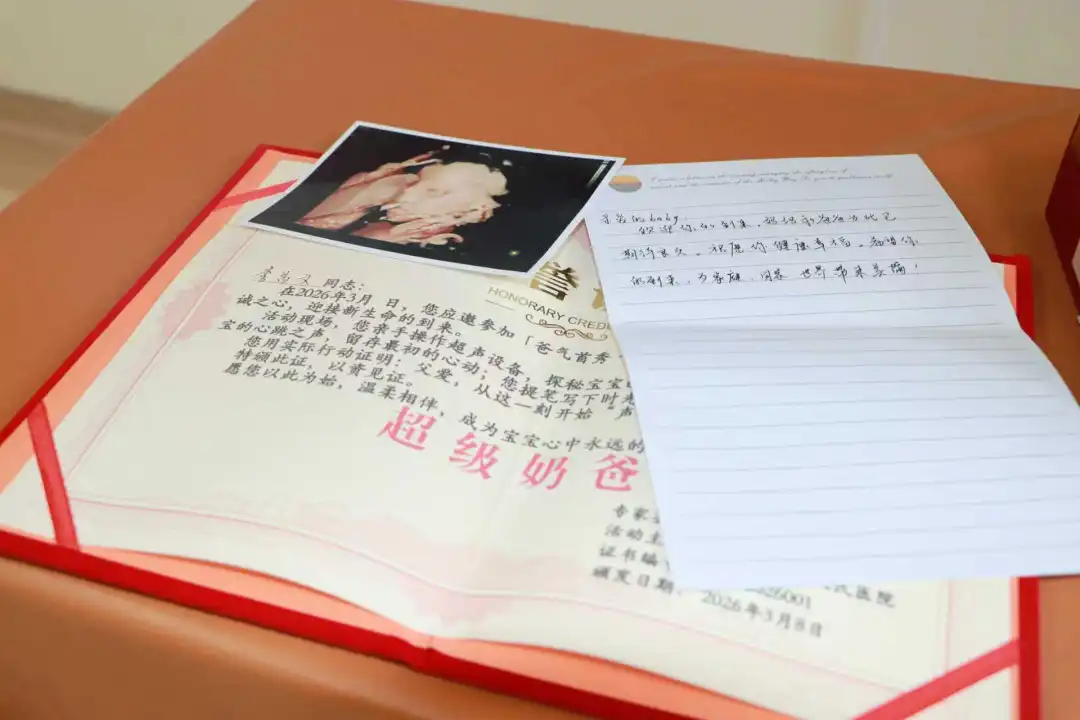 誉
HONORARY CRED
同志：
在2026年3月 日，您应邀参加「爸气首秀
诚之心，迎接新生命的到来。
活动现场，您亲手操作超声设备，探秘宝宝
宝的心跳之声，留存最初的心动；您提笔写下时光
您用实际行动证明：父爱，从这一刻开始“声
特颁此证，以资见证。
愿您以此为始，温柔相伴，成为宝宝心中永远的
超级奶爸
专家
活动主
证书编 26001
民医院
颁发日期： 2026年3月8日
亲爱的baby：
欢迎你的到来，妈妈和爸爸为此已
期待良久。祝愿你健康幸福。希望你
的到来，为家庭、国家、世界带来美满！